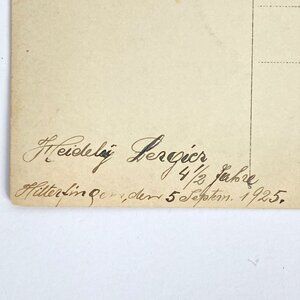 Heidely Bergier
4 1/2 Jahre
Hilterfingen, den 5 Septm. 1925.